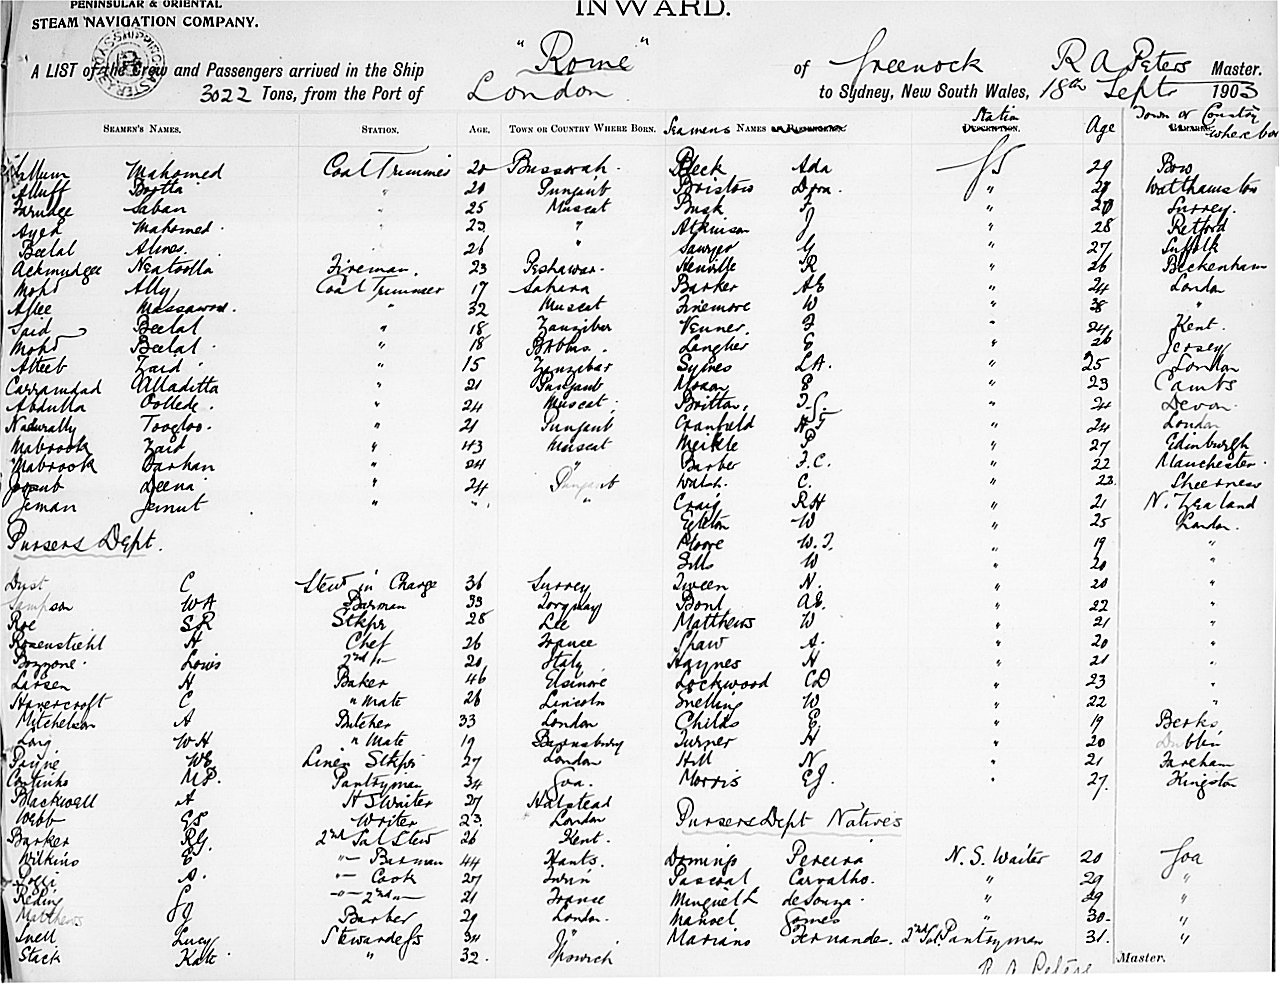 PENINSULAR & ORIENTAL
STEAM NAVIGATION COMPANY.
INWARD.
A LIST of the Crew and Passengers arrived in the Ship "Rome" of Greenock R A Peters Master.
3022 Tons, from the Port of London to Sydney, New South Wales, 18th Sept 1903
SEAMEN'S NAMES. STATION. AGE. TOWN OR COUNTRY WHERE BORN.
Mahomed Coal Trimmer 20 Bussorah.
Botta " 20 Punjaub
Saban " 25 Muscat
Mahomed " 23 "
Beelal 26 "
Fireman. 23 Peshawar.
Mohd Ally Coal Trimmer 19 Sahara
Massawood. " 32 Muscat
Said Beelal " 18 Zanzibar
Mohd Beelal " 18
Zaid " 15 Zanzibar
Alladitta " 21 Punjaub
Abdulla " 24 Muscat
Toogloo. " 21 Punjaub
Mabrook Zaid " 43 Muscat
Mabrook Barhan " 24 "
Deena " 24 Punjaub
Jeman Jemut " " "
Pursers Dept.
Dust C Stew in Charge 36 Surrey
Sampson W A Barman 33 Torquay
Roe S R Stkpr 28 Lee
Rosenstiehl H Chef 26 France
Bozzone Louis 2nd " 20 Italy
Larsen H Baker 46 Elsinore
Havercroft C " Mate 26 Lincoln
Mitchelson A Butcher 33 London
Long W H " Mate 19 Barnsbury
Payne W E Linen Stkpr 27 London
Continho M P. Pantryman 34 Goa.
Blackwell A H S Waiter 27 Halstead
Webb E S Writer 23 London
Barker R G. 2nd Sal Stew 26 Kent.
Wilkins E " Barman 44 Hants.
A. " Cook 27 Turin
Reding G " 2nd " 21 France
Matthews G J Barber 29 London.
Snell Lucy Stewardess 34 "
Stack Kate " 32. Ipswich
Seamens NAMES Station Age Town or Country where born
Bleck Ada SS 29 Bow
Boistow Dora. " 29 Walthamstow
Busk F " 28 Surrey.
Atkinson J " 28 Retford
Sawyer G " 27 Suffolk
Henville R " 26 Beckenham
Barker A E " 24 London
Finemore W " 38 "
Venner. F " 24 Kent.
Langher E " 26 Jersey
Sydnes L A. " 25 London
Moran P " 23 Cambs
Britton, F. G. " 24 Devon.
Cranfield H F " 24 London
Meikle P " 27 Edinburgh
Barber F. C. " 22 Manchester
Walsh. C. " 23 Sheerness
Craig R H " 21 N. Zealand
W " 25 London.
Moore W. F. " 19 "
W " 20 "
Tween N. " 20 "
Bont A E. " 22 "
Matthews W " 21 "
Shaw A. " 20 "
Haynes H " 21 "
Lockwood C D " 23 "
Snelling W " 22 "
Childs E " 19 Berks
Turner H " 20 Dublin
Hill N " 21 Fareham
Morris E J " 27. Kingston
Pursers Dept Natives
Domingo Pereira N. S. Waiter 20 Goa
Pascoal Carvalho. " 29 "
de Souza. " 29 "
Manoel Gomes " 30 "
Mariano Fernande. 2nd Sal. Pantryman 31. "
R A Peters Master.